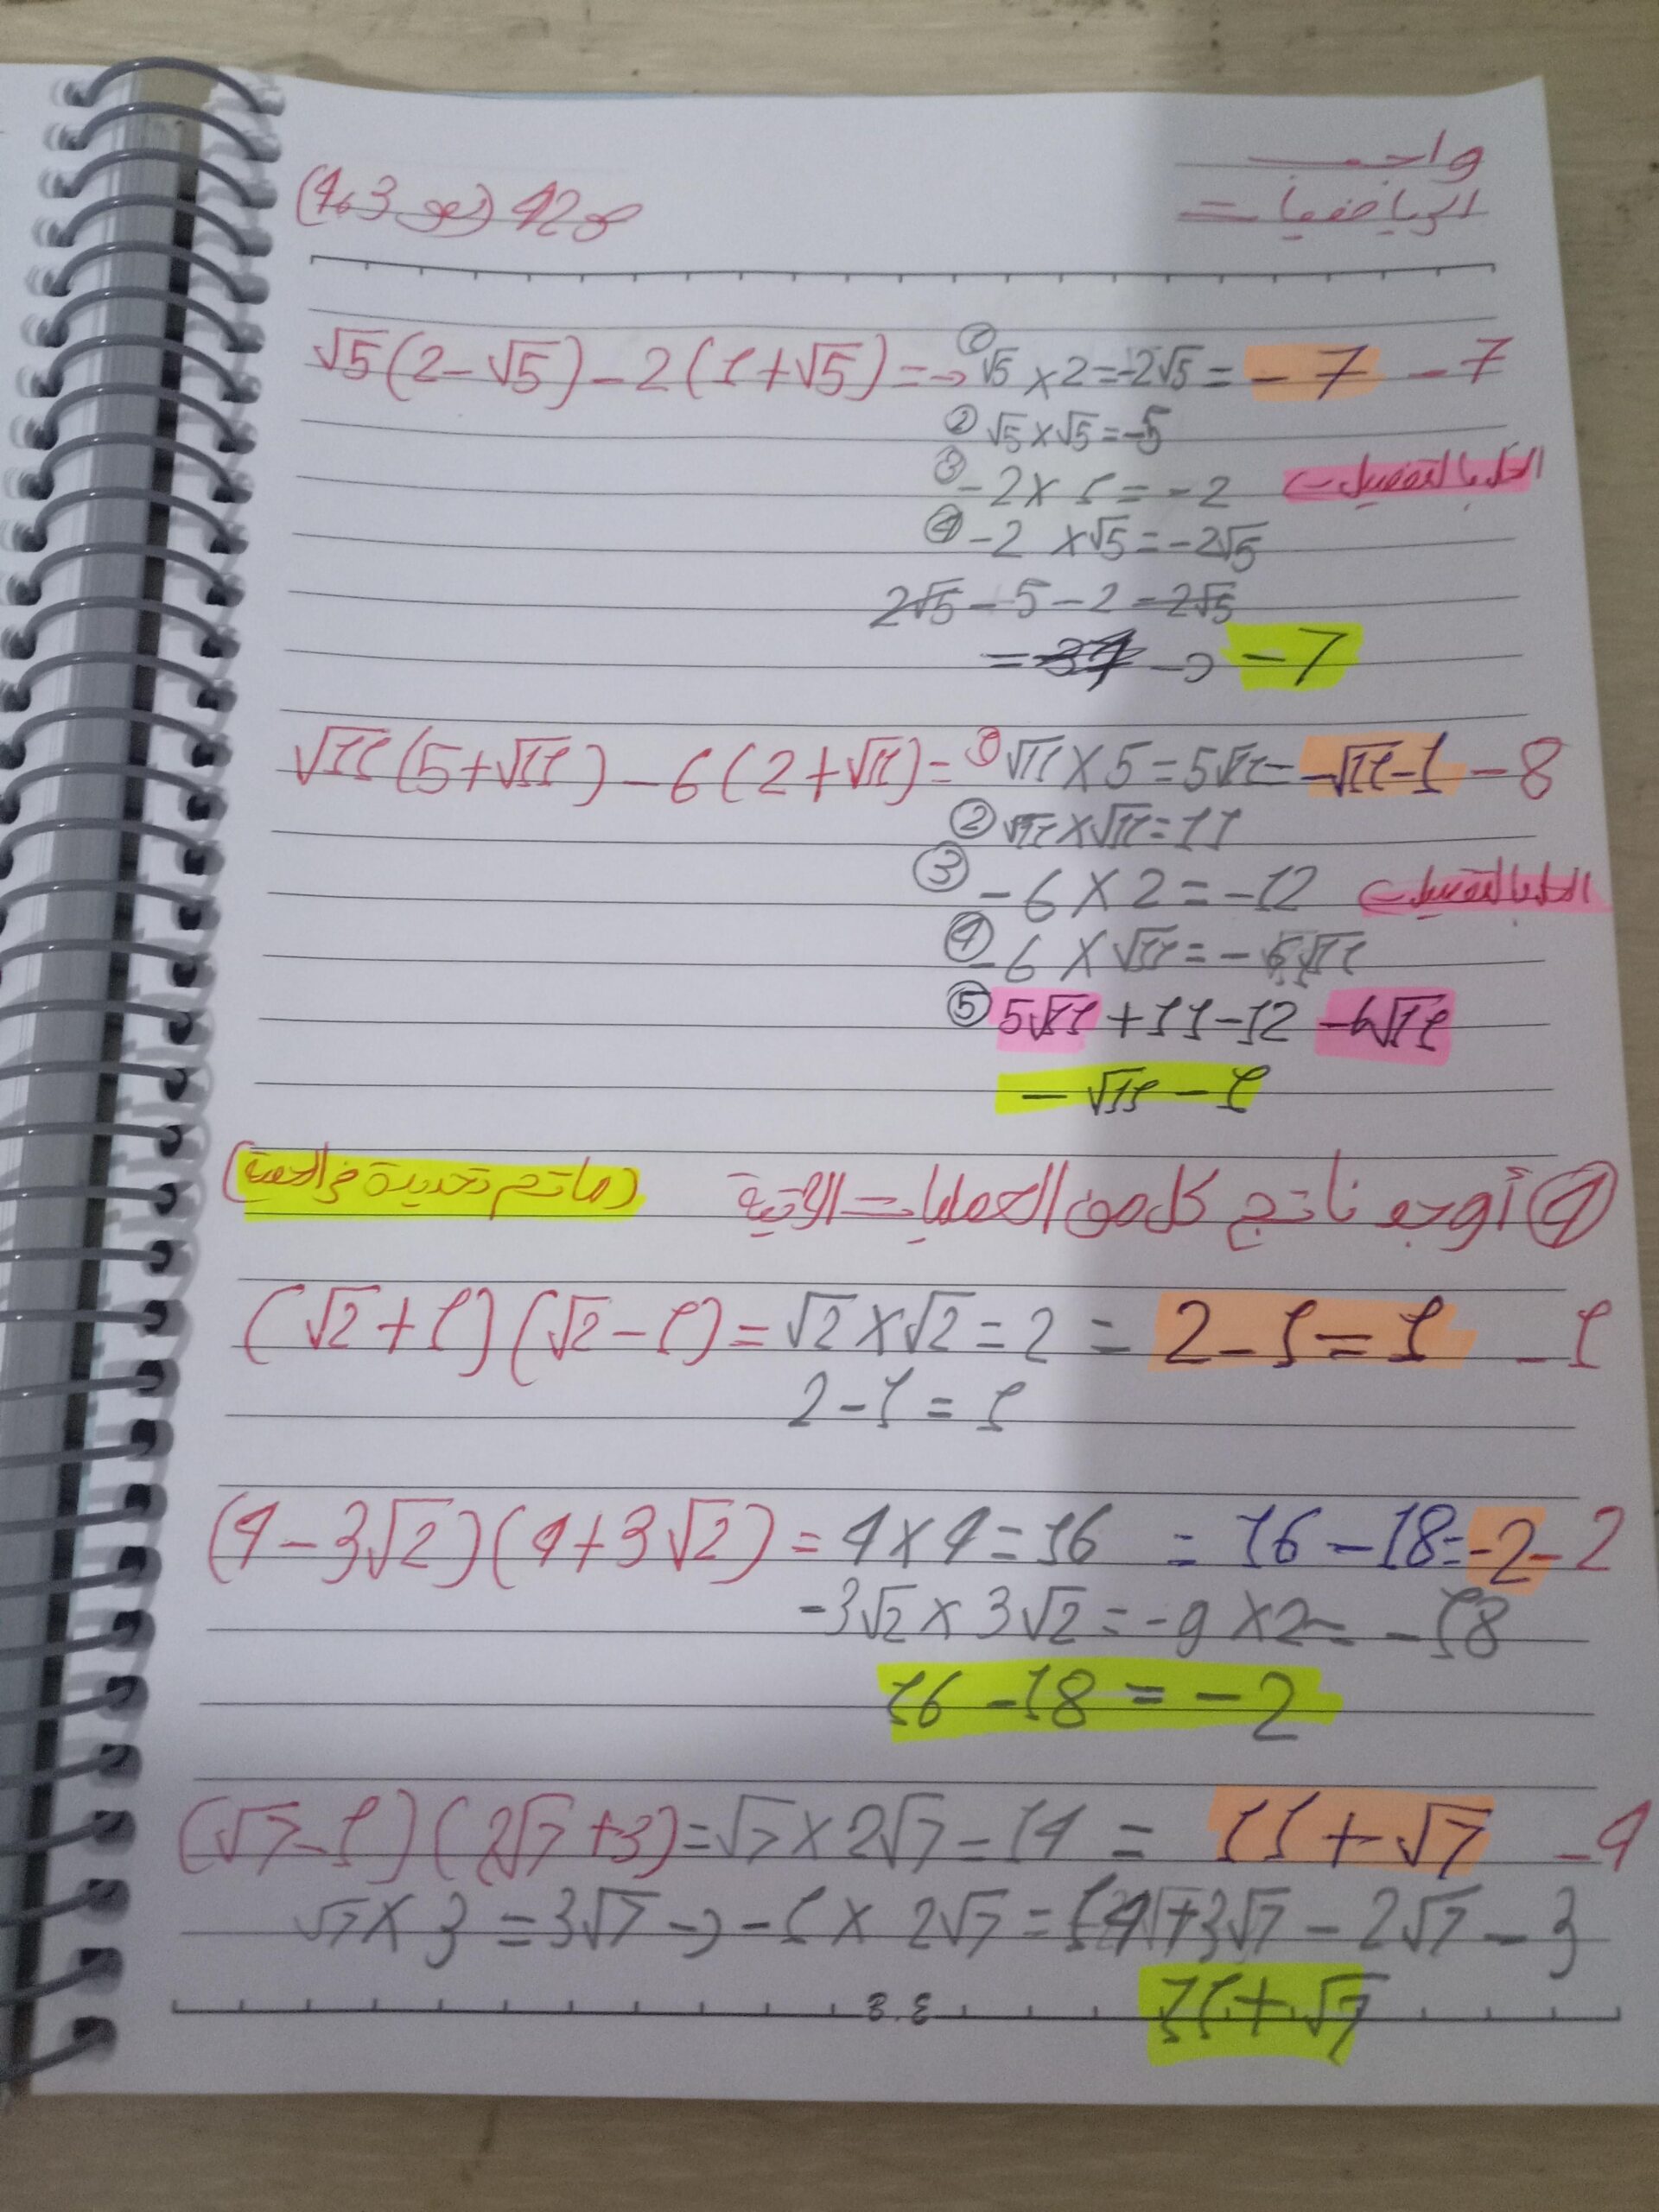 واجب
الرياضيات
ص42 (تمرين 3،4)
√5(2-√5)-2(1+√5)=→ ① √5×2=-2√5= -7 -7
② √5×√5=-5
③ -2×1=-2 الحل بالتفصيل
④ -2×√5=-2√5
2√5-5-2-2√5
= → -7
√11(5+√11)-6(2+√11)= ① √11×5=5√11= -√11-1 -8
② √11×√11=11
③ -6×2=-12 الحل بالتفصيل
④ -6×√11=-6√11
⑤ 5√11+11-12-6√11
-√11-1
④ أوجد ناتج كل من العمليات الآتية (ما تم تحديدة في الحصة)
(√2+1)(√2-1)=√2×√2=2= 2-1=1 -1
2-1=1
(4-3√2)(4+3√2)=4×4=16 =16-18=-2 -2
-3√2×3√2=-9×2=-18
16-18=-2
(√7-1)(2√7+3)=√7×2√7=14= 11+√7 -4
√7×3=3√7→-1×2√7=14+3√7-2√7-3
11+√7